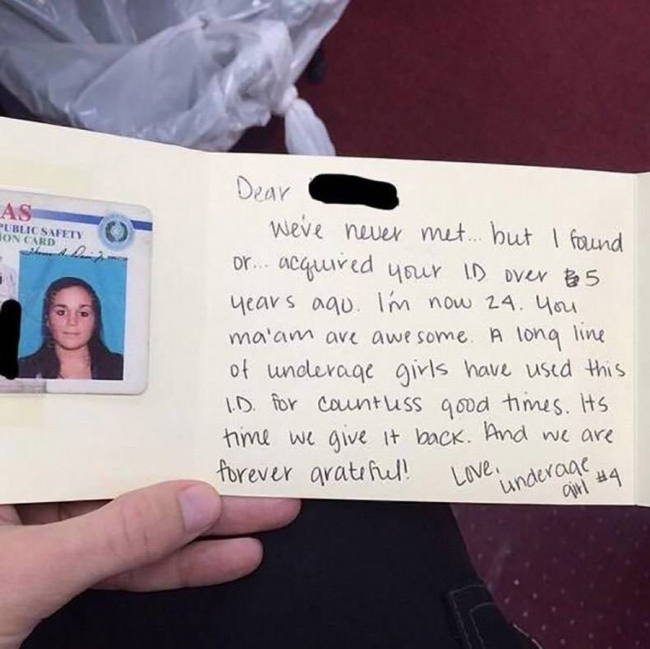 AS
PUBLIC SAFETY
ION CARD
Dear
We've never met... but I found
or... acquired your ID over 5
years ago. I'm now 24. You
ma'am are awesome. A long line
of underage girls have used this
I.D. for countless good times. Its
time we give it back. And we are
forever grateful!
Love,
underage
girl #4